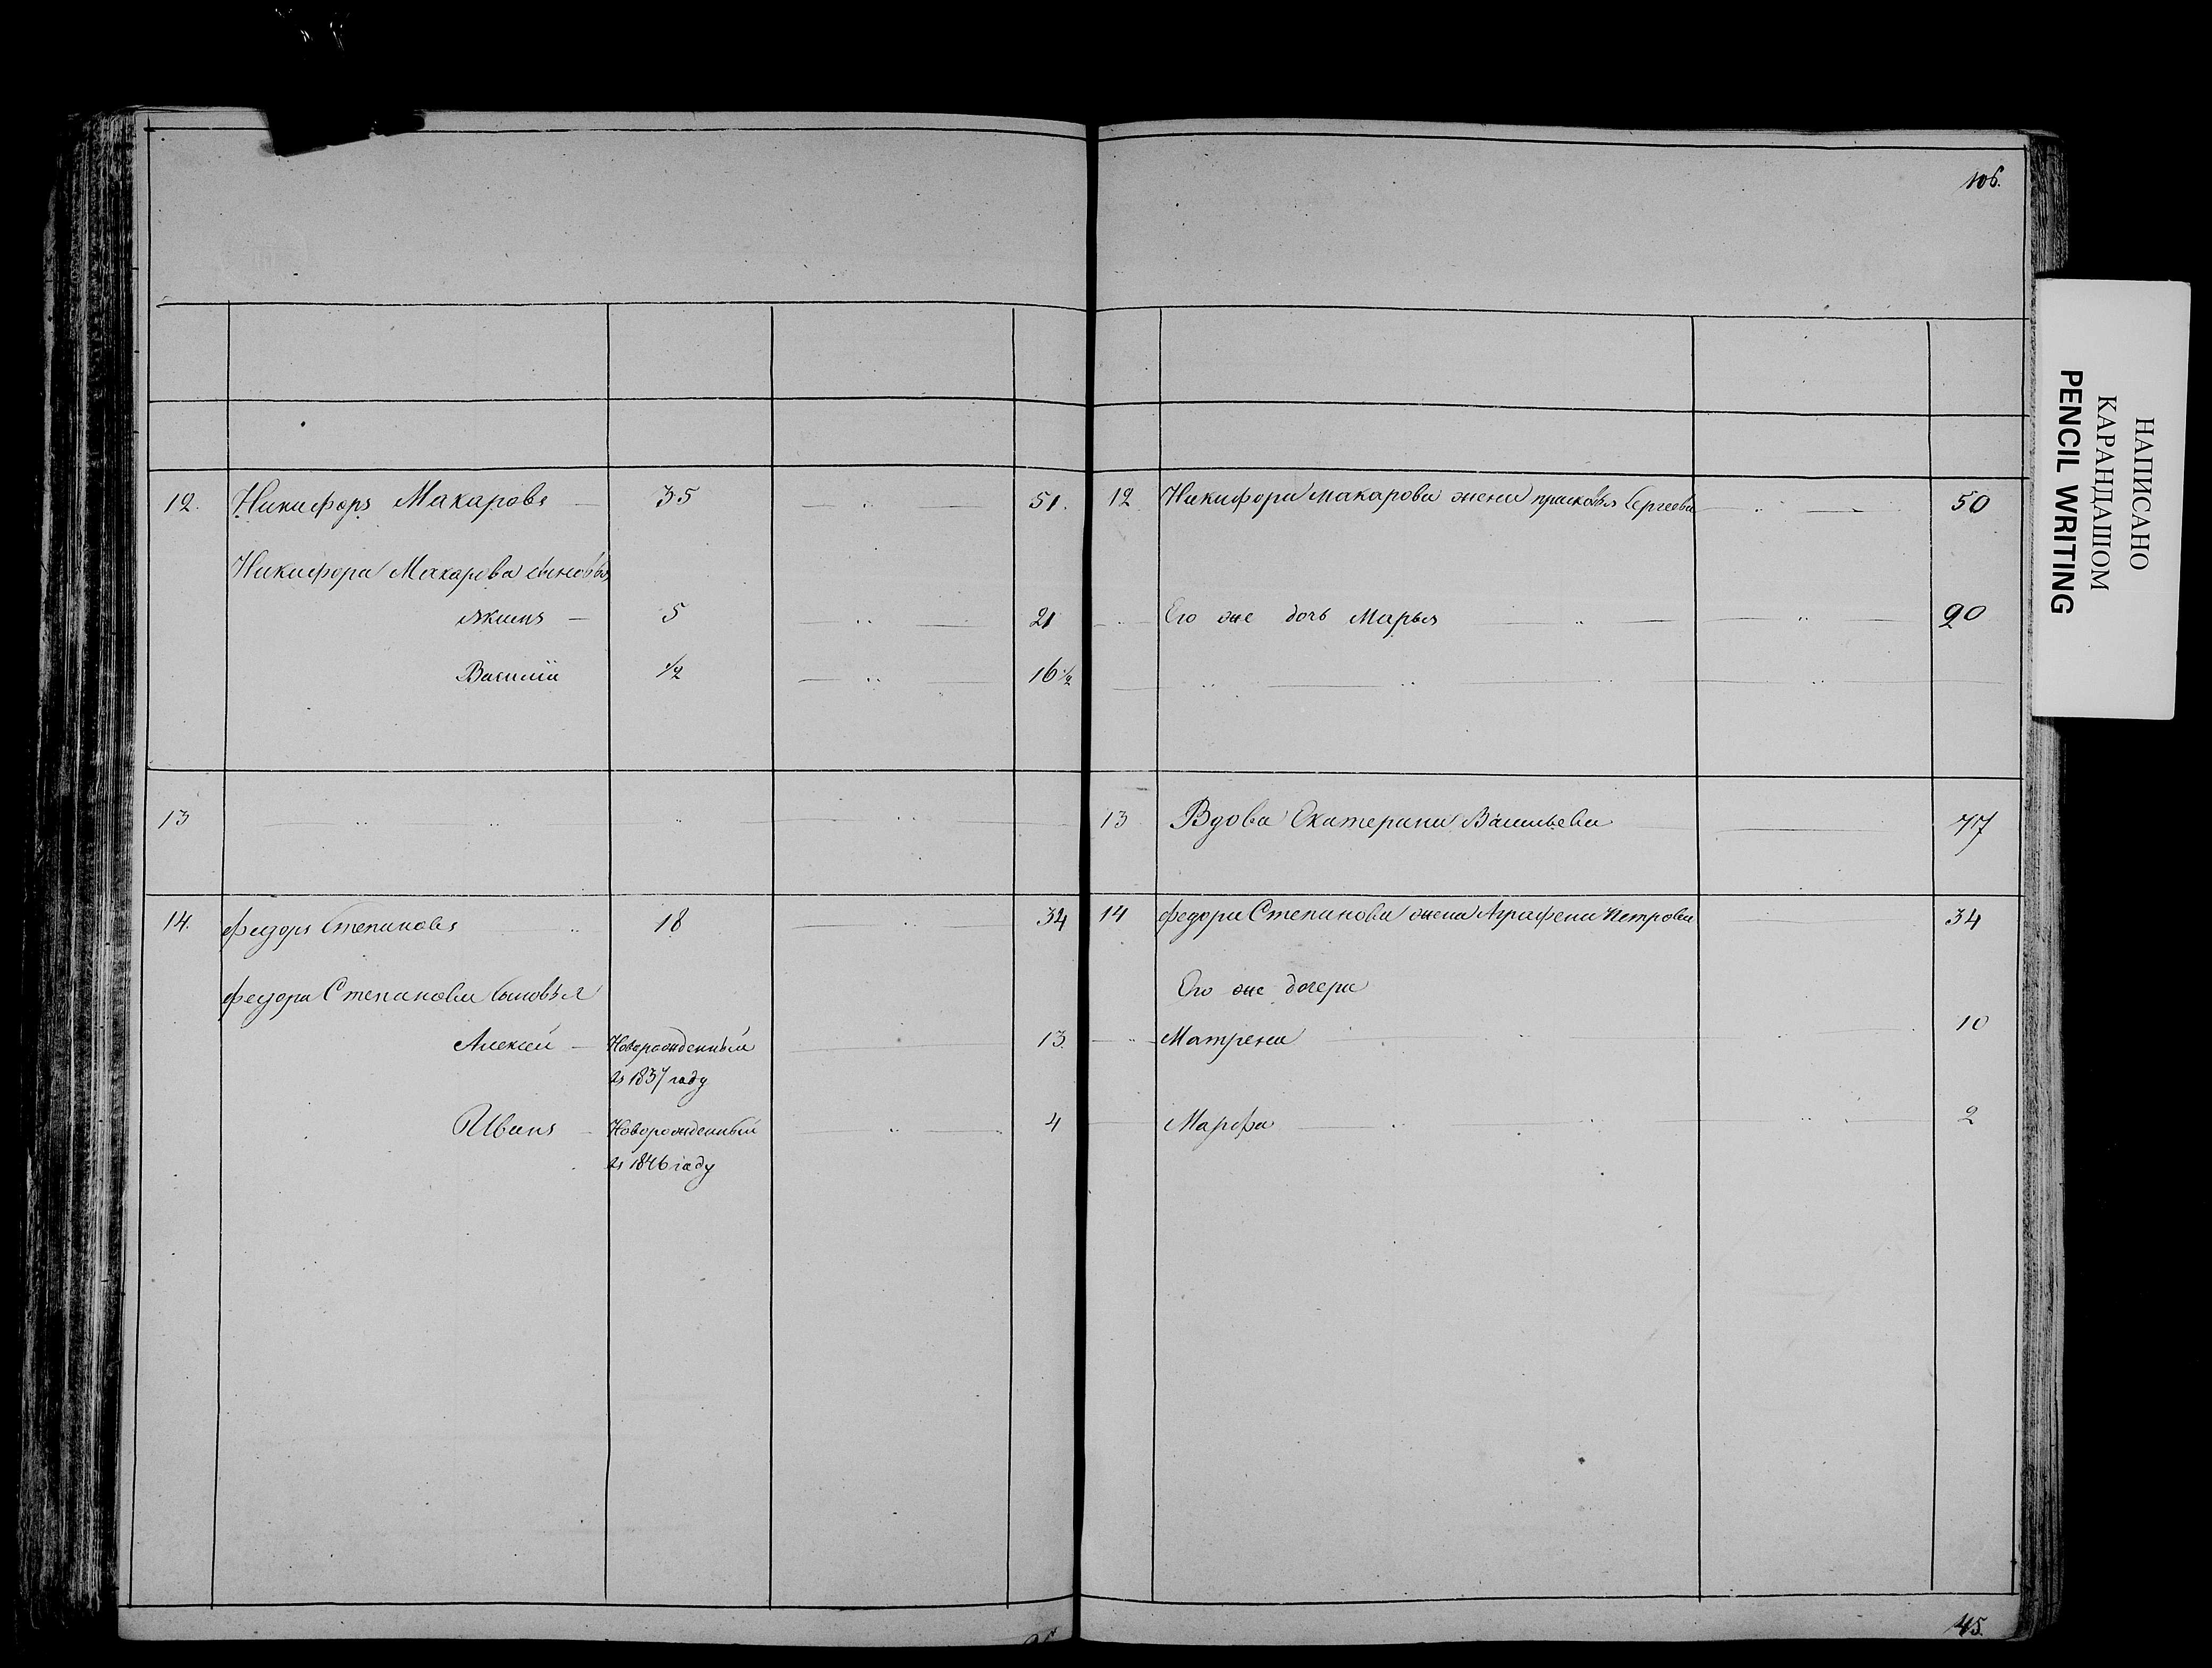 106.
12. Никифоръ Макаровъ 35 51.
Никифора Макарова сыновья
Якимъ 5 21
Василiй 1/2 16 1/2
13
14. Федоръ Степановъ 18 34
Федора Степанова сыновья
Алексей Новорожденный 13
въ 1837 году
Иванъ Новорожденный 4
въ 1846 году
12 Никифора Макарова жена прасковья Сергеева 50
Его же дочь Марья 20
13 Вдова Екатерина Васильева 77
14 Федора Степанова жена Аграфена Петрова 34
Его же дочери
Матрена 10
Марфа 2
45.
НАПИСАНО
КАРАНДАШОМ
PENCIL WRITING